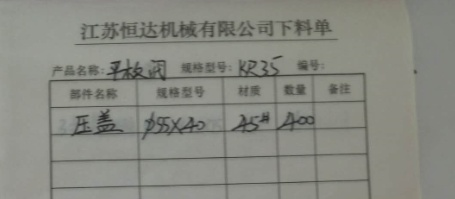 江苏恒达机械有限公司下料单
产品名称：平板闸 规格型号：KR35 编号：
部件名称 规格型号 材质 数量 备注
压盖 φ55×40 45# 400